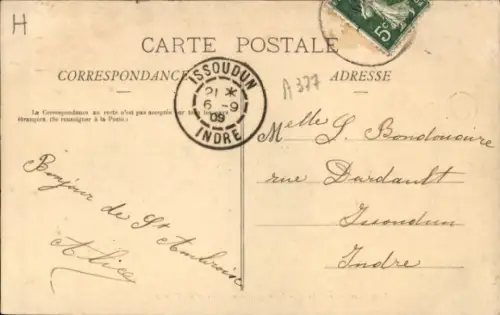 H
5c
CARTE POSTALE
CORRESPONDANCE
ADRESSE
ISSOUDUN
21 *
6 - 9
09
INDRE
A 377
La Correspondance au recto n'est pas acceptée par tous les pays
étrangers. (Se renseigner à la Poste.)
Bonjour de St Ambroise
Alice
Melle S. Bondoucire
rue Dardault
Issoudun
Indre